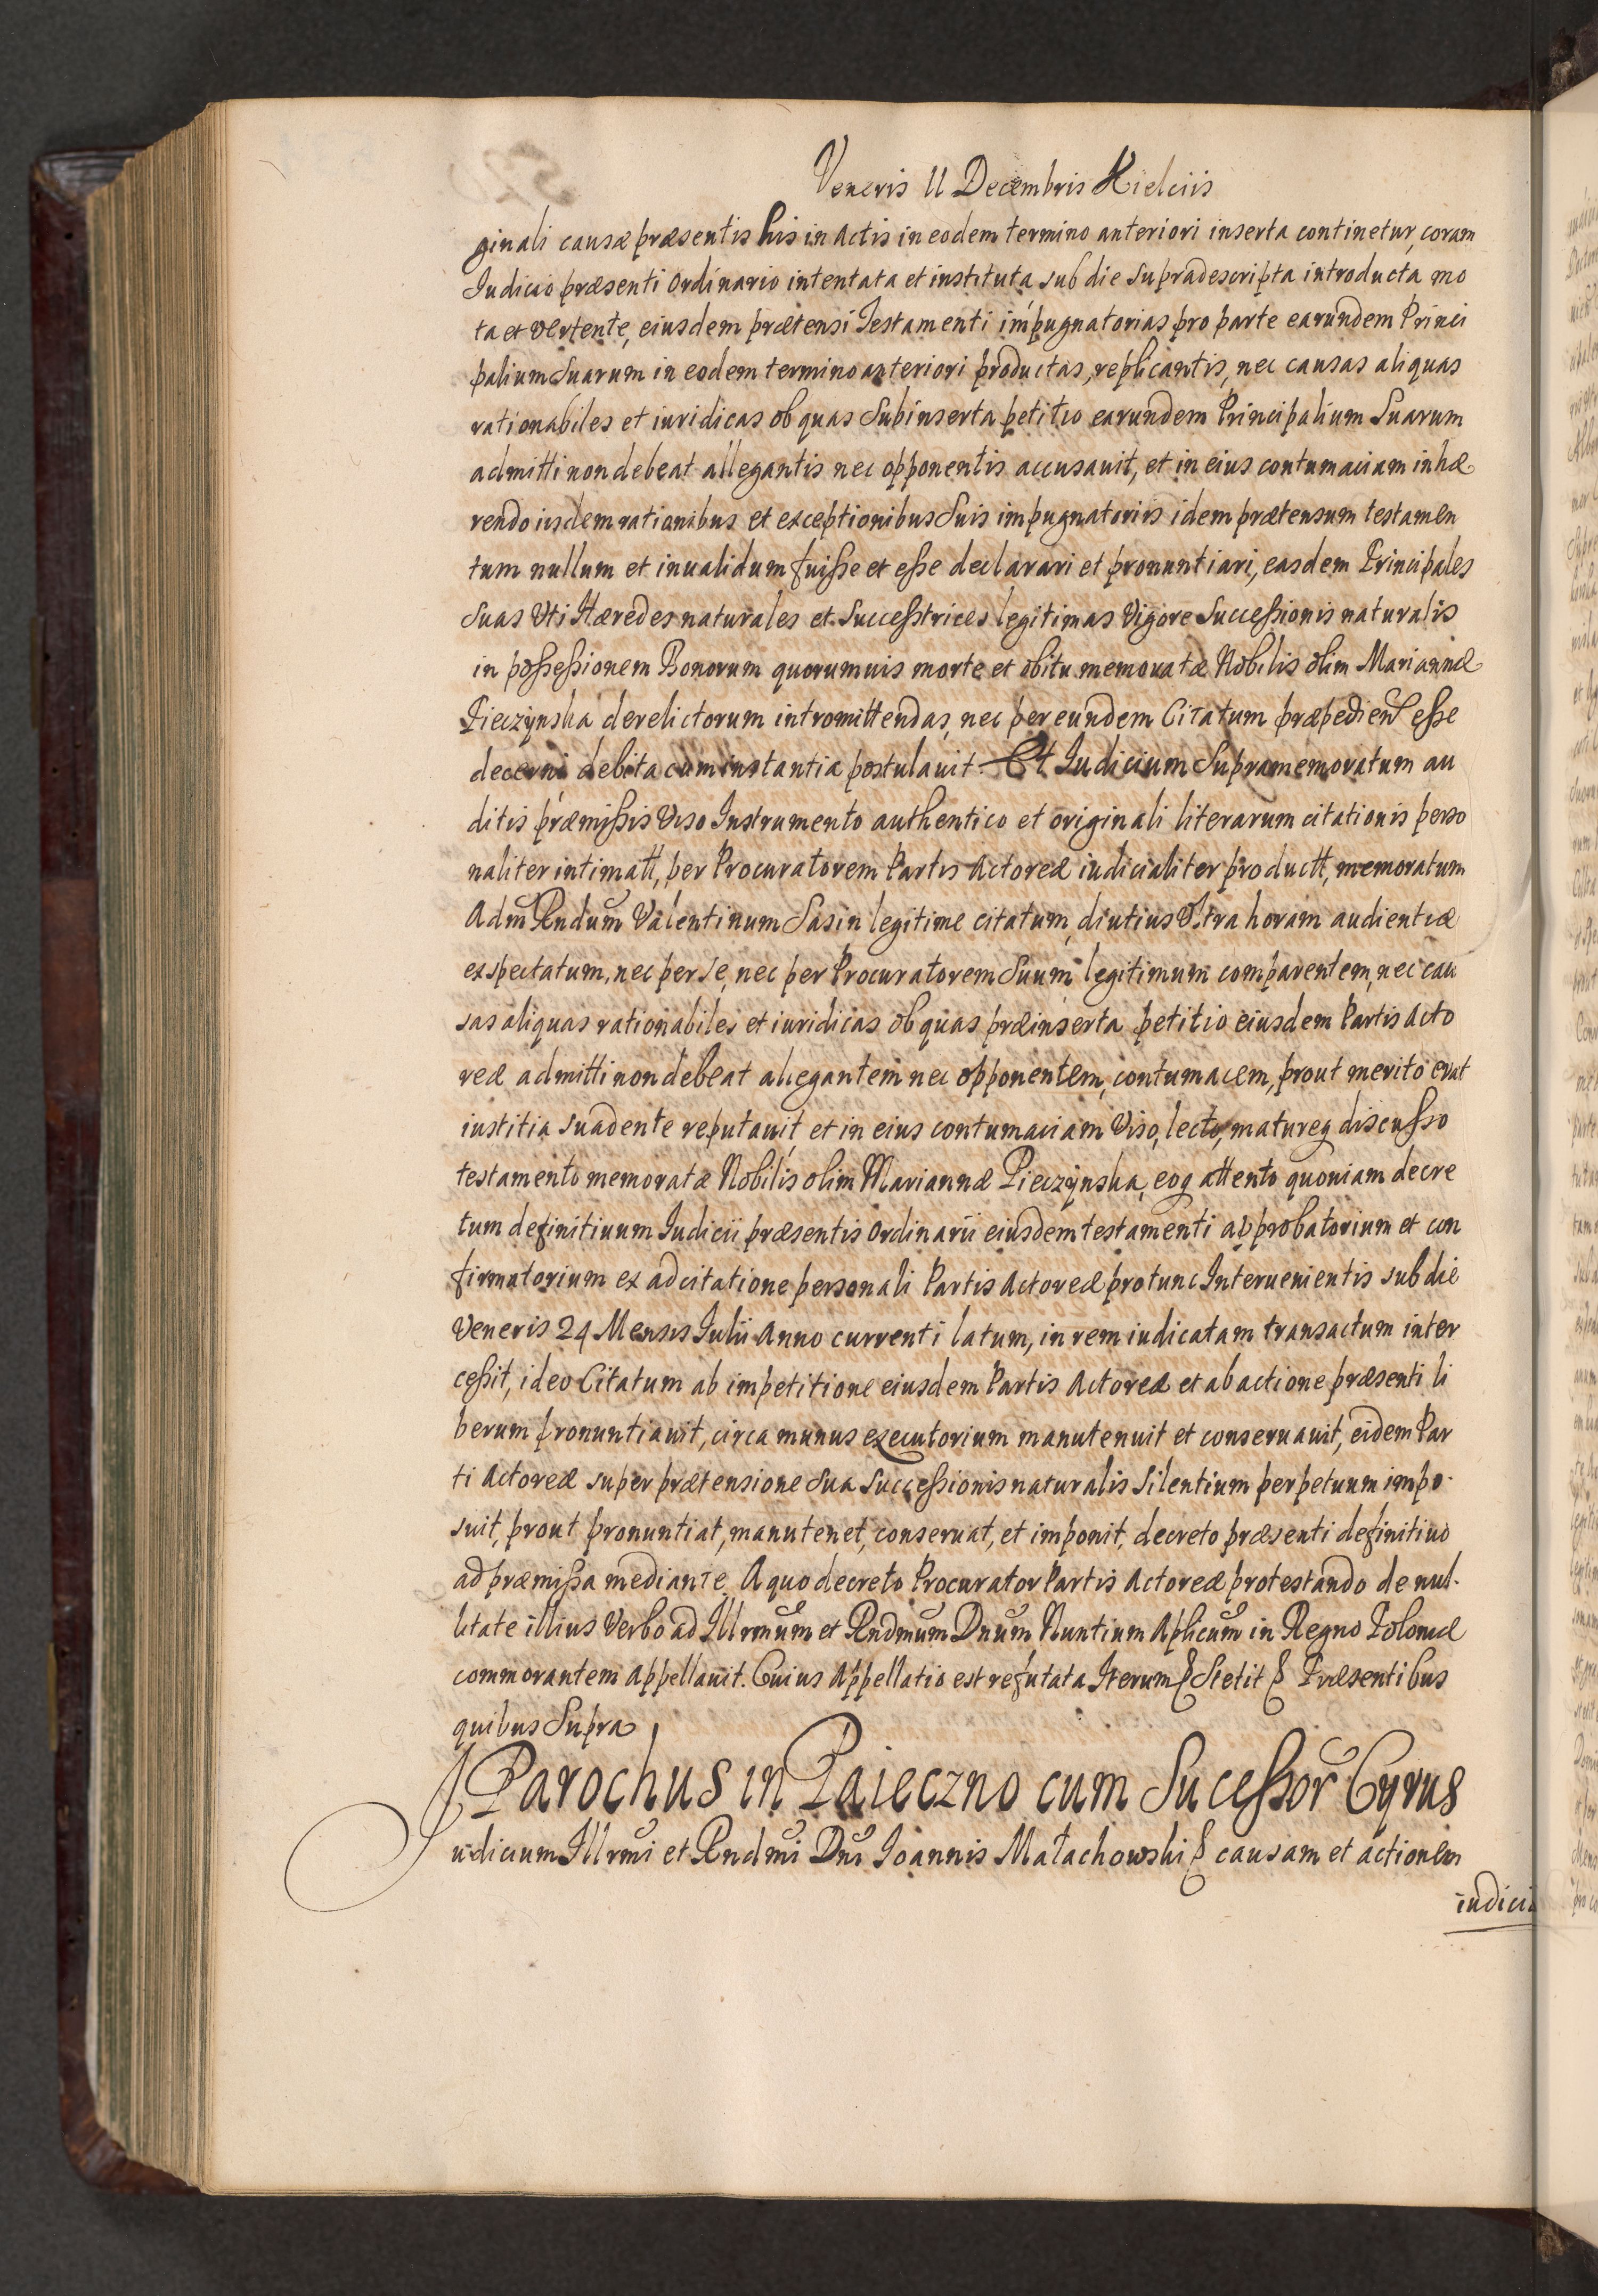 Veneris 11 Decembris Kielciis
ginali causæ præsentis his in Actis in eodem termino anteriori inserta continetur, coram
Iudicio præsenti Ordinario intentata et instituta sub die supradescripta introducta mo
ta et vertente, eiusdem prætensi Testamenti impugnatorias pro parte earundem Princi
palium Suarum in eodem termino anteriori productas, replicantis, nec causas aliquas
rationabiles et iuridicas ob quas Subinserta petitio earundem Principalium Suarum
admitti non debeat allegantis nec opponentis accusauit, et in eius contumaciam inhæ
rendo iisdem rationibus et exceptionibus Suis impugnatoriis idem prætensum testamen
tum nullum et inualidum fuisse et esse declarari et pronuntiari, easdem Principales
Suas Vti Hæredes naturales et Successtrices legitimas Vigore Successionis naturalis
in possessionem Bonorum quorumuis morte et obitu memoratæ Nobilis olim Mariannæ
Pieczynska derelictorum intromittendas, nec per eundem Citatum præpediend esse
decerni debita cum instantia postulauit. Et Iudicium Supramemoratum au
ditis præmissis Viso Instrumento authentico et originali literarum citationis perso
naliter intimatt, per Procuratorem Partis Actoreæ iudicialiter productt, memoratum
Adm Rndum Valentinum Sasin legitime citatum, diutius Vltra horam audientiæ
exspectatum, nec per se, nec per Procuratorem Suum legitimum comparentem, nec cau
sas aliquas rationabiles et iuridicas ob quas præinserta petitio eiusdem Partis Acto
reæ admitti non debeat allegantem nec opponentem, contumacem, prout merito erat
iustitia suadente reputauit et in eius contumaciam Viso, lecto, matureq discusso
testamento memoratæ Nobilis olim Mariannæ Pieczynska, eoq attento quoniam decre
tum definitiuum Iudicii præsentis Ordinarii eiusdem testamenti approbatorium et con
firmatorium ex adcitatione personali Partis Actoreæ pro tunc Interuenientis sub die
Veneris 24 Mensis Iulii Anno currenti latum, in rem iudicatam transactum inter
cessit, ideo Citatum ab impetitione eiusdem Partis Actoreæ et ab actione præsenti li
berum pronuntiauit, circa munus executorium manutenuit et conseruauit, eidem Par
ti Actoreæ super prætensione Sua Successionis naturalis Silentium perpetuum impo
suit, prout pronuntiat, manutenet, conseruat, et imponit, decreto præsenti definitiuo
ad præmissa mediante. A quo decreto Procurator Partis Actoreæ protestando de nul
litate illius Verbo ad Illrmum et Rndmum Dnum Nuntium Aplicum in Regno Poloniæ
commorantem Appellauit. Cuius Appellatio est refutata Iterum & Stetit & Præsentibus
quibus Supra
Parochus in Paieczno cum Sucessor Cyrus
Iudicium Illrmi et Rndmi Dni Ioannis Małachowski & causam et actionem
iudici